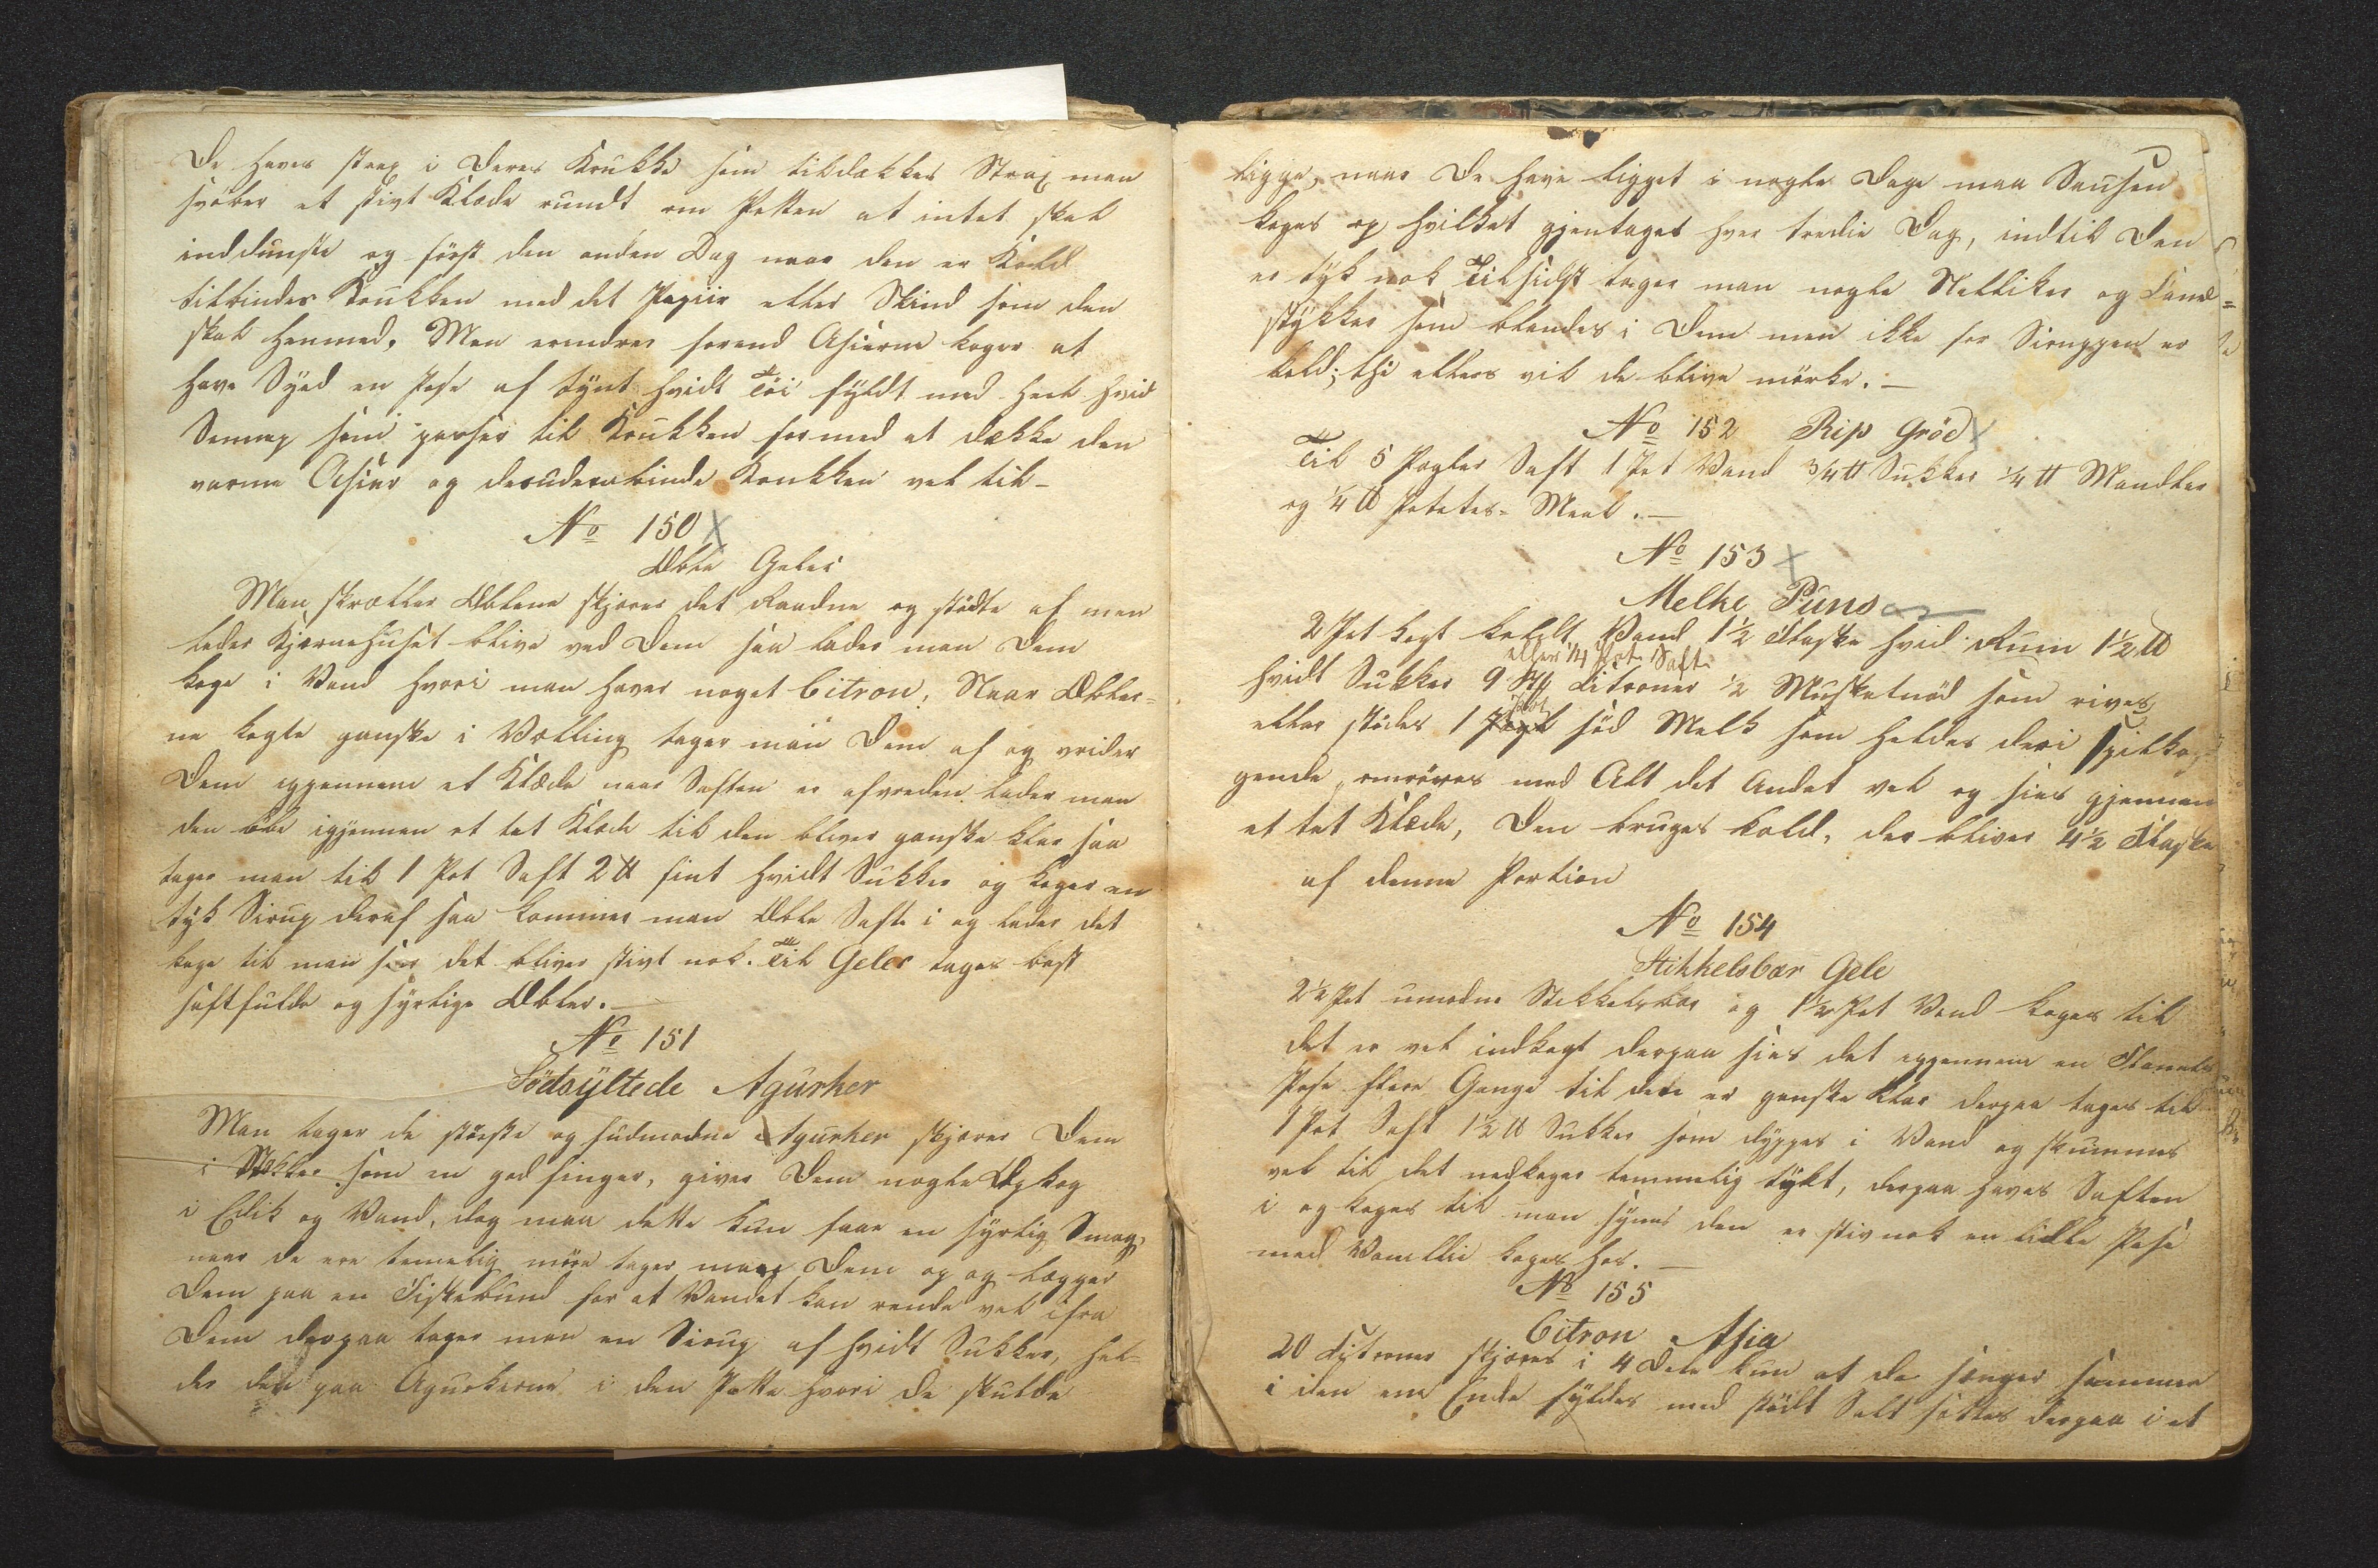 De haves strax i deres Krukke som tildækkes Strax man
svøber et stivt Klæde rundt om Potten at intet skal
inddunste og först den anden Dag naar den er Kold
tilbindes Krukken med det Papiir eller Skind som den
skal henmed. Man erindrer forend Asierne koger at
have Syed en Pose af tÿnt hvidt Töi fÿldt med heel hvid
Sennep som passer til Krukken formed at dække den
varme Asier og desuden binde Krukken vel til-
No 150
Æble Gelei
Man skræller Æblene skjærer det Raadne og stödte af men
lader Kjærnehuset blive ved Dem saa lader man Dem
koge i Vand hvori man haver noget Citron. Naar Æbler=
ne kogte ganske i Vælling tager man Dem af og vrider
Dem igjennem et Klæde naar Saften er afvreden lader man
den löbe igjennem et tet Klæde til den bliver ganske klar saa
tager man til 1 Pot Saft 2 ℔ fint hvidt Sukker og koger en
tÿk Sirup deraf saa kommer man Æble Saften i og lader det
koge til man seer det bliver stivt nok. Til Geleer tages best
saftfulde og sÿrlige Æbler.
No 151
Södsÿltede Agurker
Man tager de störste og fuldmodne Agurker skjærer Dem
i Stÿkker som en god finger, giver Dem nogle Opkog
i Edik og Vand, dog maa dette kun faae en sÿrlig Smag,
naar de ere temelig möre tager man Dem op og lægger
Dem paa en Fiskebund for at Vandet kan rende vel ifra
Dem derpaa tages man en Sirup af hvidt Sukker, hel=
des den paa Agurkerne i den Potte hvori de skulde
ligge, naar De have ligget i nogle Dage maa Sausen
koges op hvilket gjentages hver tredie Dag, indtil den
er tÿk nok Tilsidst tager man nogle Nelliker og Canel=
stÿkker som blandes i Dem men ikke før Siruppen er
kold; thi ellers vil de blive mörke.-
No 152 Rip Gröd
Til 5 Pægler Saft 1 Pot Vand 3/4 ℔ Sukker 1/4 ℔ Mandler
og 1/4 ℔ Potetes-Meel.-
No 153
Melke Puns
2 Pot kogt koldt Vand 1½ Flaske hvid Rum 1½ ℔
eller 1/4 Pot Saft
hvidt Sukker 9 Stk Citroner ½ Muskatnöd som rives
Pot
eller stödes 1 Pægl söd Melk som heldes deri spilko=
gende, omröres med Alt det Andet vel og sies gjennem
et tet Klæde, Den bruges kold, der bliver 4½ Flaske
af denne Portion
No 154
Stikkelsbær Gele
2½ Pot umodne Stikkelsbær og 1½ Pot Vand koges til
det er vel indkogt derpaa sies det igjennem en Flanels
Pose flere Gange til det er ganske klar derpaa tages til
1 Pot Saft 1½ ℔ Sukker som dÿppes i Vand og skummes
vel til det nedkoger temmelig tÿkt, derpaa haves Saften
i og koges til man sÿnes den er stiv nok en lidle Pose
med Vanillie koges hos.-
No 155
Citron Asia
20 Citroner skjæres i 4 Dele kun at de hænger sammen
i den ene Ende fÿldes med stödt Salt sættes derpaa i et